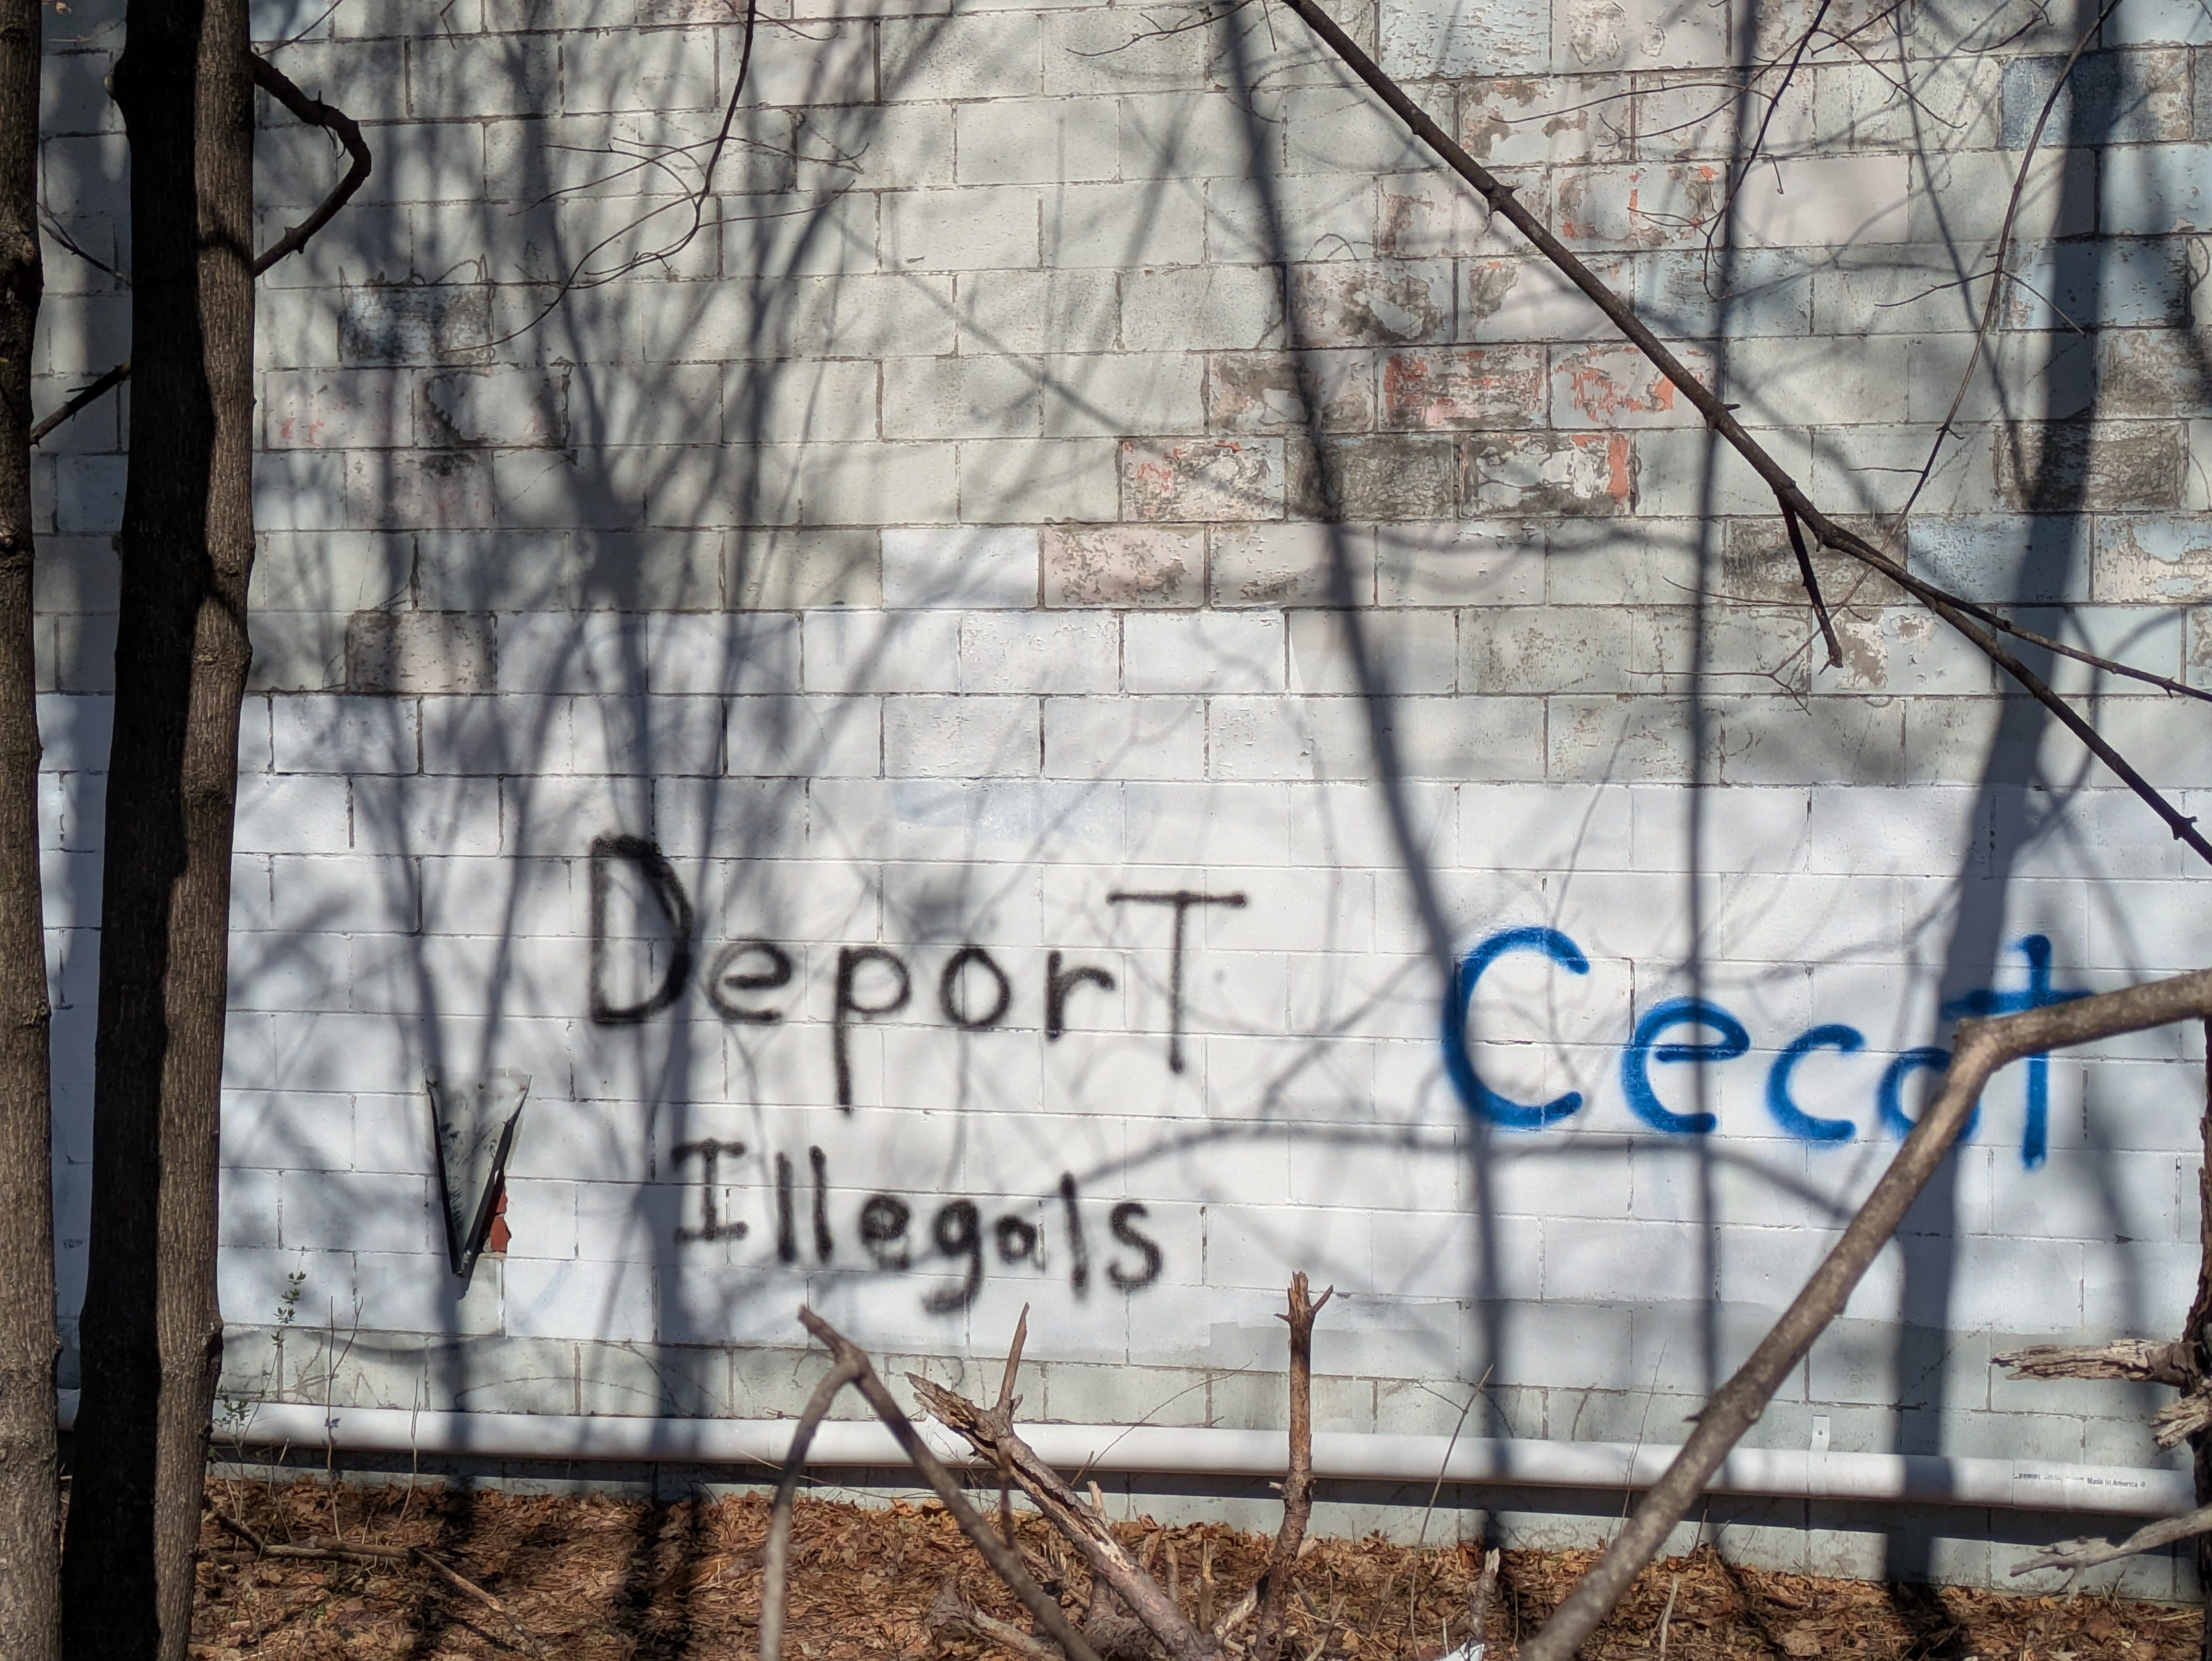 DeporT
Illegals
Cecot
Made In America